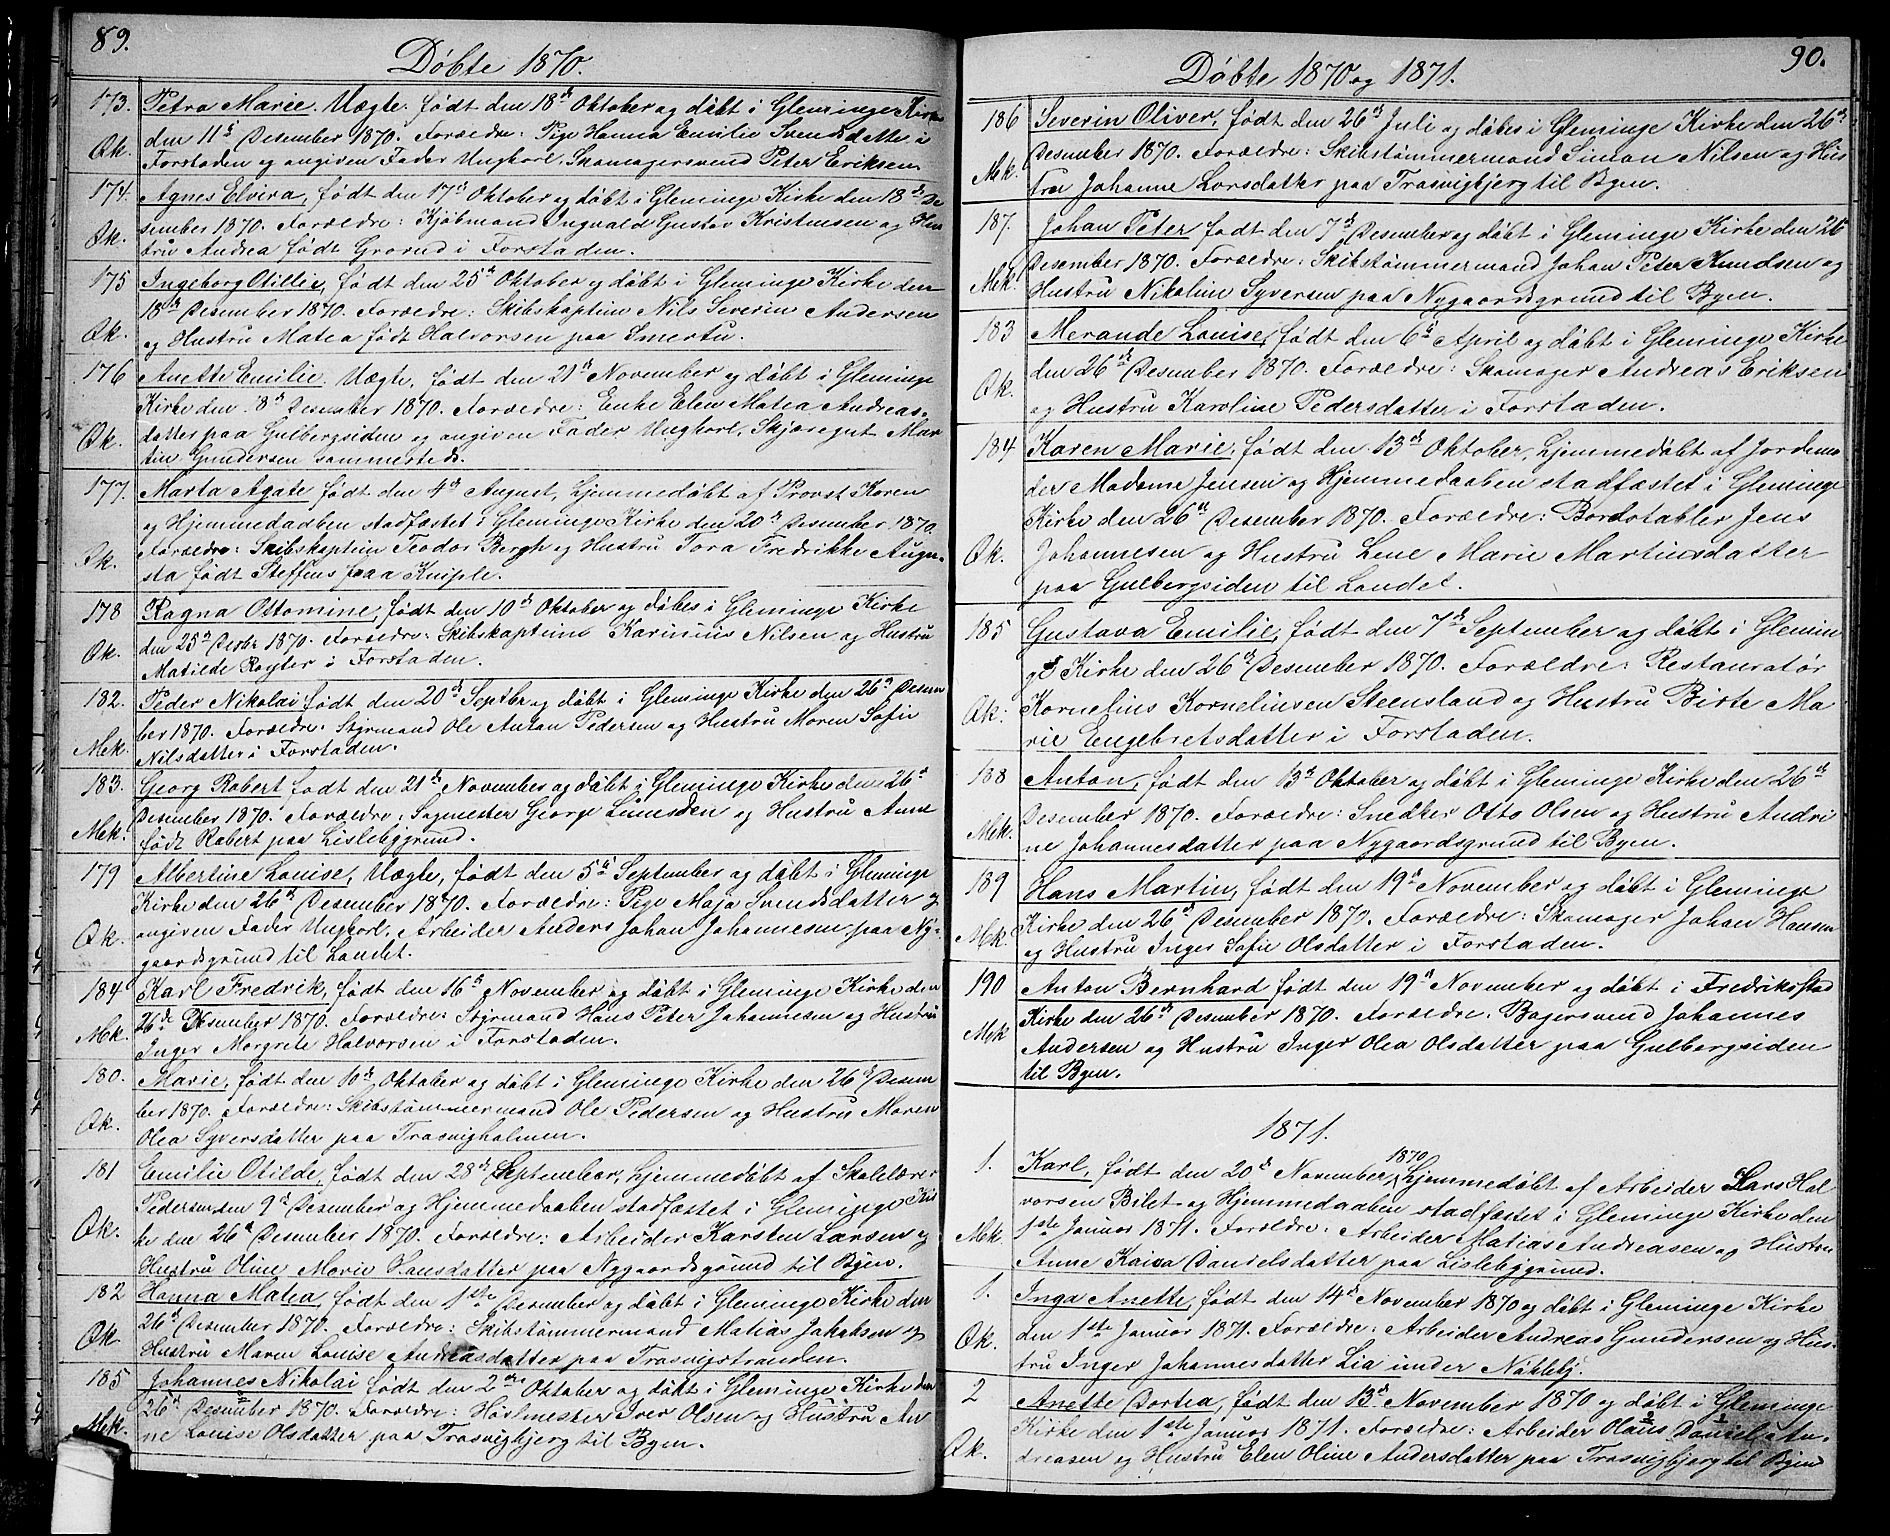 89.
Døbte 1870.
173. Petra Marie. Uægte. født den 18de Oktober og døbt i Gleminge Kirke
den 11te Desember 1870. Forældre: Pige Hanna Emilie Svendsdatter i
Qk. Forstaden og angiven Fader Ungkorl, Skomagersvend Peter Eriksen.
174. Agnes Elvira, født den 17de Oktober og døbt i Gleminge Kirke den 18de De
sember 1870. Forældre: Kjøbmand Ingvald Gustav Kristensen og Hus
Qk. tru Andrea født Grorud i Forstaden.
175 Ingeborg Otillie, født den 25de Oktober og døbt i Gleminge Kirke den
18de Desember 1870. Forældre: Skibskaptein Nils Severin Andersen
Qk. og Hustru Matea født Halvorsen paa Smertu.
176 Anette Emilie. Uægte, født den 21de November og døbt i Gleminge
Kirke den 18de Desember 1870. Forældre: Enke Elen Matea Andreas-
Qk. datter paa Gulbergsiden og angiven Fader Ungkorl, Skjæregut Mar
tin Gundersen sammesteds.
177. Marta Agate født den 4de August, hjemmedøbt af Provst Koren
og Hjemmedaaben stadfæstet i Gleminge Kirke den 20de Desember 1870.
Qk. Forældre: Skibskaptein Teodor Bergh og Hustru Tora Fredrikke Augu-
sta født Steffens paa Kniple.
178 Ragna Ottomine, født den 10de Oktober og døbes i Gleminge Kirke
den 25de Desbr 1870. Forældre: Skibskaptein Karinius Nilsen og Hustru
Qk. Matilde Røyter i Forstaden.
182. Peder Nikolai født den 20de Septbr og døbt i Gleminge Kirke den 26de Desem
ber 1870. Forældre: Styrmand Ole Anton Pedersen og Hustru Maren Sofie
Mck. Nilsdatter i Forstaden.
183. Georg Robert født den 21de November og døbt i Gleminge Kirke den 26de
Desember 1870. Forældre: Sagmester George Lumsden og Hustru Anne
Mck. født Robert paa Lislebygrund.
179 Albertine Louise, Uægte, født den 5te September og døbt i Gleminge
Kirke den 26de Desember 1870. Forældre: Pige Maja Svendsdatter og
Qk. angiven Fader Ungkorl, Arbeider Anders Johan Johannesen paa Ny-
gaardsgrund til Landet.
184 Karl Fredrik, født den 16de November og døbt i Gleminge Kirke den
26de Desember 1870. Forældre: Styrmand Hans Peter Johannesen og Hustru
Mck. Inger Margrete Halvorsen i Forstaden.
180. Marie, født den 10de Oktober og døbt i Gleminge Kirke den 26de Desem
ber 1870. Forældre: Skibstømmermand Ole Pedersen og Hustru Maren
Qk. Olea Syversdatter paa Trosvigholmen.
181 Emilie Otilde, født den 28de September, hjemmedøbt af Skolelærer
Pedersen den 9de Desember og Hjemmedaaben stadfæstet i Gleminge Kir
Qk. ke den 26de Desember 1870. Forældre: Arbeider Karsten Larsen og
Hustru Oline Marie Hansdatter paa Nygaardsgrund til Byen.
182 Hanna Matea, født den 1ste Desember og døbt i Gleminge Kirke den
26de Desember 1870. Forældre: Skibstømmermand Matias Jakobsen og
Qk. Hustru Maren Louise Andreasdatter paa Trosvigstranden.
185 Johannes Nikolai født den 2den Oktober og døbt i Gleminge Kirke den
26de Desember 1870. Forældre: Høvlmester Iver Olsen og Hustru An
Mck. ne Louise Olsdatter paa Trosvigbjerg til Byen.
90.
Døbte 1870 og 1871.
186 Severin Oliver, født den 26de Juli og døbes i Gleminge Kirke den 26de
Desember 1870. Forældre: Skibstømmermand Simon Nilsen og Hus
Mck. tru Johanne Larsdatter paa Trosvigbjerg til Byen.
187. Johan Peter født den 7de Desember og døbt i Gleminge Kirke den 26de
Desember 1870. Forældre: Skibstømmermand Johan Peter Knudsen og
Mck. Hustru Nikoline Syversen paa Nygaardsgrund til Byen.
183 Merande Louise, født den 6te April og døbt i Gleminge Kirke
den 26de Desember 1870. Forældre: Skomager Andreas Eriksen
Qk. og Hustru Karoline Pedersdatter i Forstaden.
184 Karen Marie, født den 13de Oktober, hjemmedøbt af Jordemo
der Madame Jensen og Hjemmedaaben stadfæstet i Gleminge
Kirke den 26de Desember 1870. Forældre: Bordstabler Jens
Qk. Johannesen og Hustru Lene Marie Martinsdatter
paa Gulbergsiden til Landet.
185 Gustava Emilie, født den 7de September og døbt i Glemin
ge Kirke den 26de Desember 1870. Forældre: Restauratør
Qk. Kornelius Korneliusen Steensland og Hustru Birte Ma
rie Engebretsdatter i Forstaden.
188 Anton, født den 13de Oktober og døbt i Gleminge Kirke den 26de
Desember 1870. Forældre: Snedker Otto Olsen og Hustru Andri
Mck. ne Johannesdatter paa Nygaardsgrund til Byen.
189 Hans Martin, født den 19de November og døbt i Gleminge
Kirke den 26de Desember 1870. Forældre: Skomager Johan Hansen
Mck. og Hustru Inger Sofie Olsdatter i Forstaden.
190 Anton Bernhard født den 19de November og døbt i Fredriksstad
Kirke den 26de Desember 1870. Forældre: Bagersvend Johannes
Mck Andersen og Hustru Inger Olea Olsdatter paa Gulbergsiden
til Byen.
1871.
1. Karl, født den 20de November 1870, hjemmedøbt af Arbeider Lars Hal
vorsen Bilet og Hjemmedaaben stadfæstet i Gleminge Kirke den
Mck. 1ste Januar 1871. Forældre: Arbeider Matias Andreasen og Hustru
Anne Kaisa Danielsdatter paa Lislebygrund.
1. Inga Anette, født den 14de November 1870 og døbt i Gleminge Kirke
den 1ste Januar 1871. Forældre: Arbeider Andreas Gundersen og Hus-
Qk. tru Inger Johannesdatter Lia under Nøkleby.
2 Anette Dortea, født den 13de November 1870 og døbt i Gleminge
Kirke den 1ste Januar 1871. Forældre: Arbeider Olaus Daniel An-
Qk. dreasen og Hustru Elen Oline Andersdatter paa Trosvigbjerg til Byen